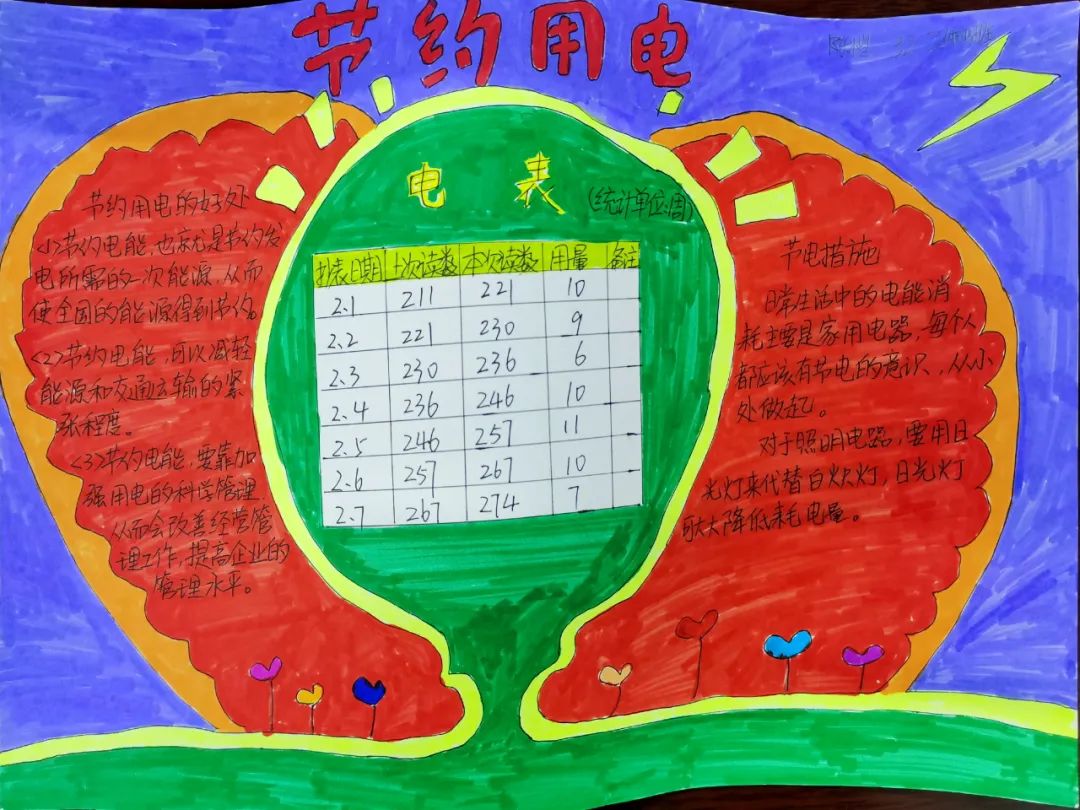 节约用电
电表
(统计单位:周)
抄表日期 上次读数 本次读数 用量 备注
2.1 211 221 10
2.2 221 230 9
2.3 230 236 6
2.4 236 246 10
2.5 246 257 11
2.6 257 267 10
2.7 267 274 7
节约用电的好处
<1>节约电能,也就是节约发
电所需的一次能源,从而
使全国的能源得到节约。
<2>节约电能,可以减轻
能源和交通运输的紧
张程度。
<3>节约电能,要靠加
强用电的科学管理
从而会改善经营管
理工作,提高企业的
管理水平。
节电措施
日常生活中的电能消
耗主要是家用电器,每个人
都应该有节电的意识,从小
处做起。
对于照明电器,要用日
光灯来代替白炽灯,日光灯
可大大降低耗电量。